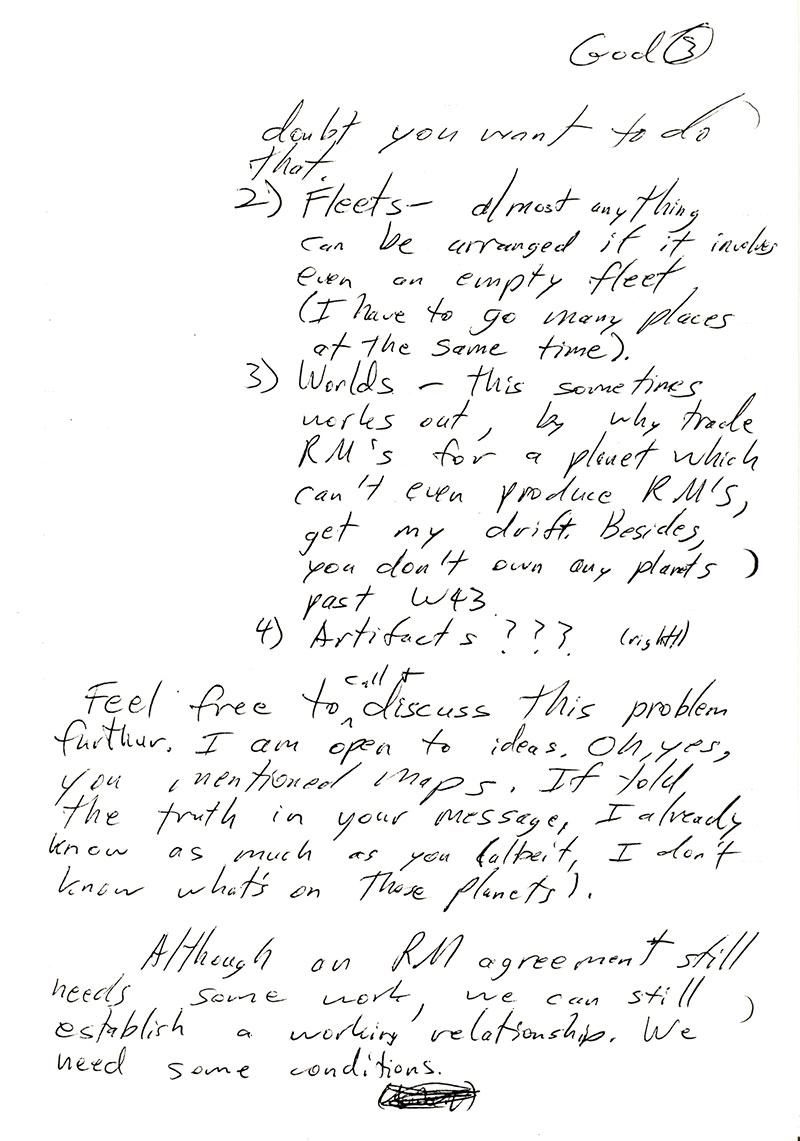 God ③
doubt you want to do
that.
2) Fleets - almost anything
can be arranged if it involves
even an empty fleet.
(I have to go many places
at the same time).
3) Worlds - this sometimes
works out, by why trade
RM's for a planet which
can't even produce RM's,
get my drift. Besides,
you don't own any planets
past W43.
4) Artifacts ??? (right!)
call +
Feel free to ^ discuss this problem
furthur. I am open to ideas. Oh, yes,
you mentioned maps. If told
the truth in your message, I already
know as much as you (albeit, I don't
know what's on those planets).
Although an RM agreement still
needs some work, we can still
establish a working relationship. We
need some conditions.